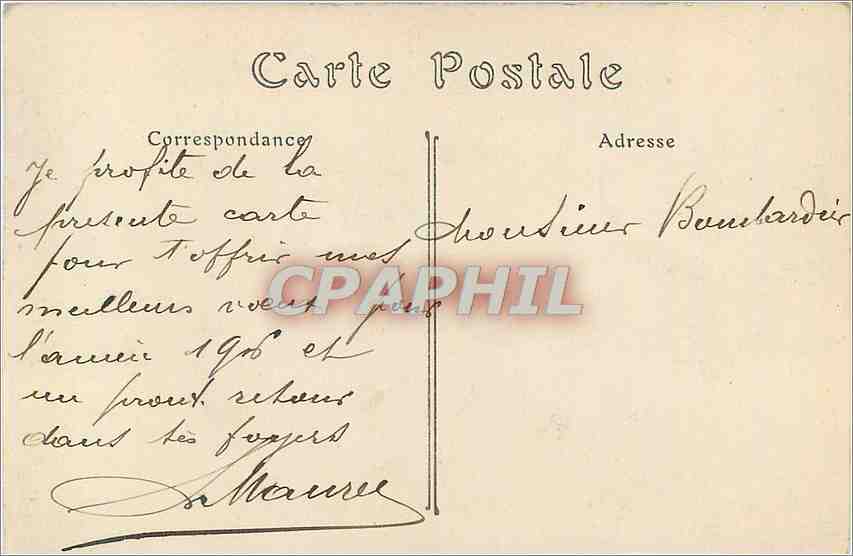 Carte Postale
Correspondance
Adresse
Je profite de la
presente carte
pour t'offrir mes
meilleurs voeux pour
l'année 1916 et
un prout retour
dans tes foyers
Maurel
Monsieur Bombardier
CPAPHIL